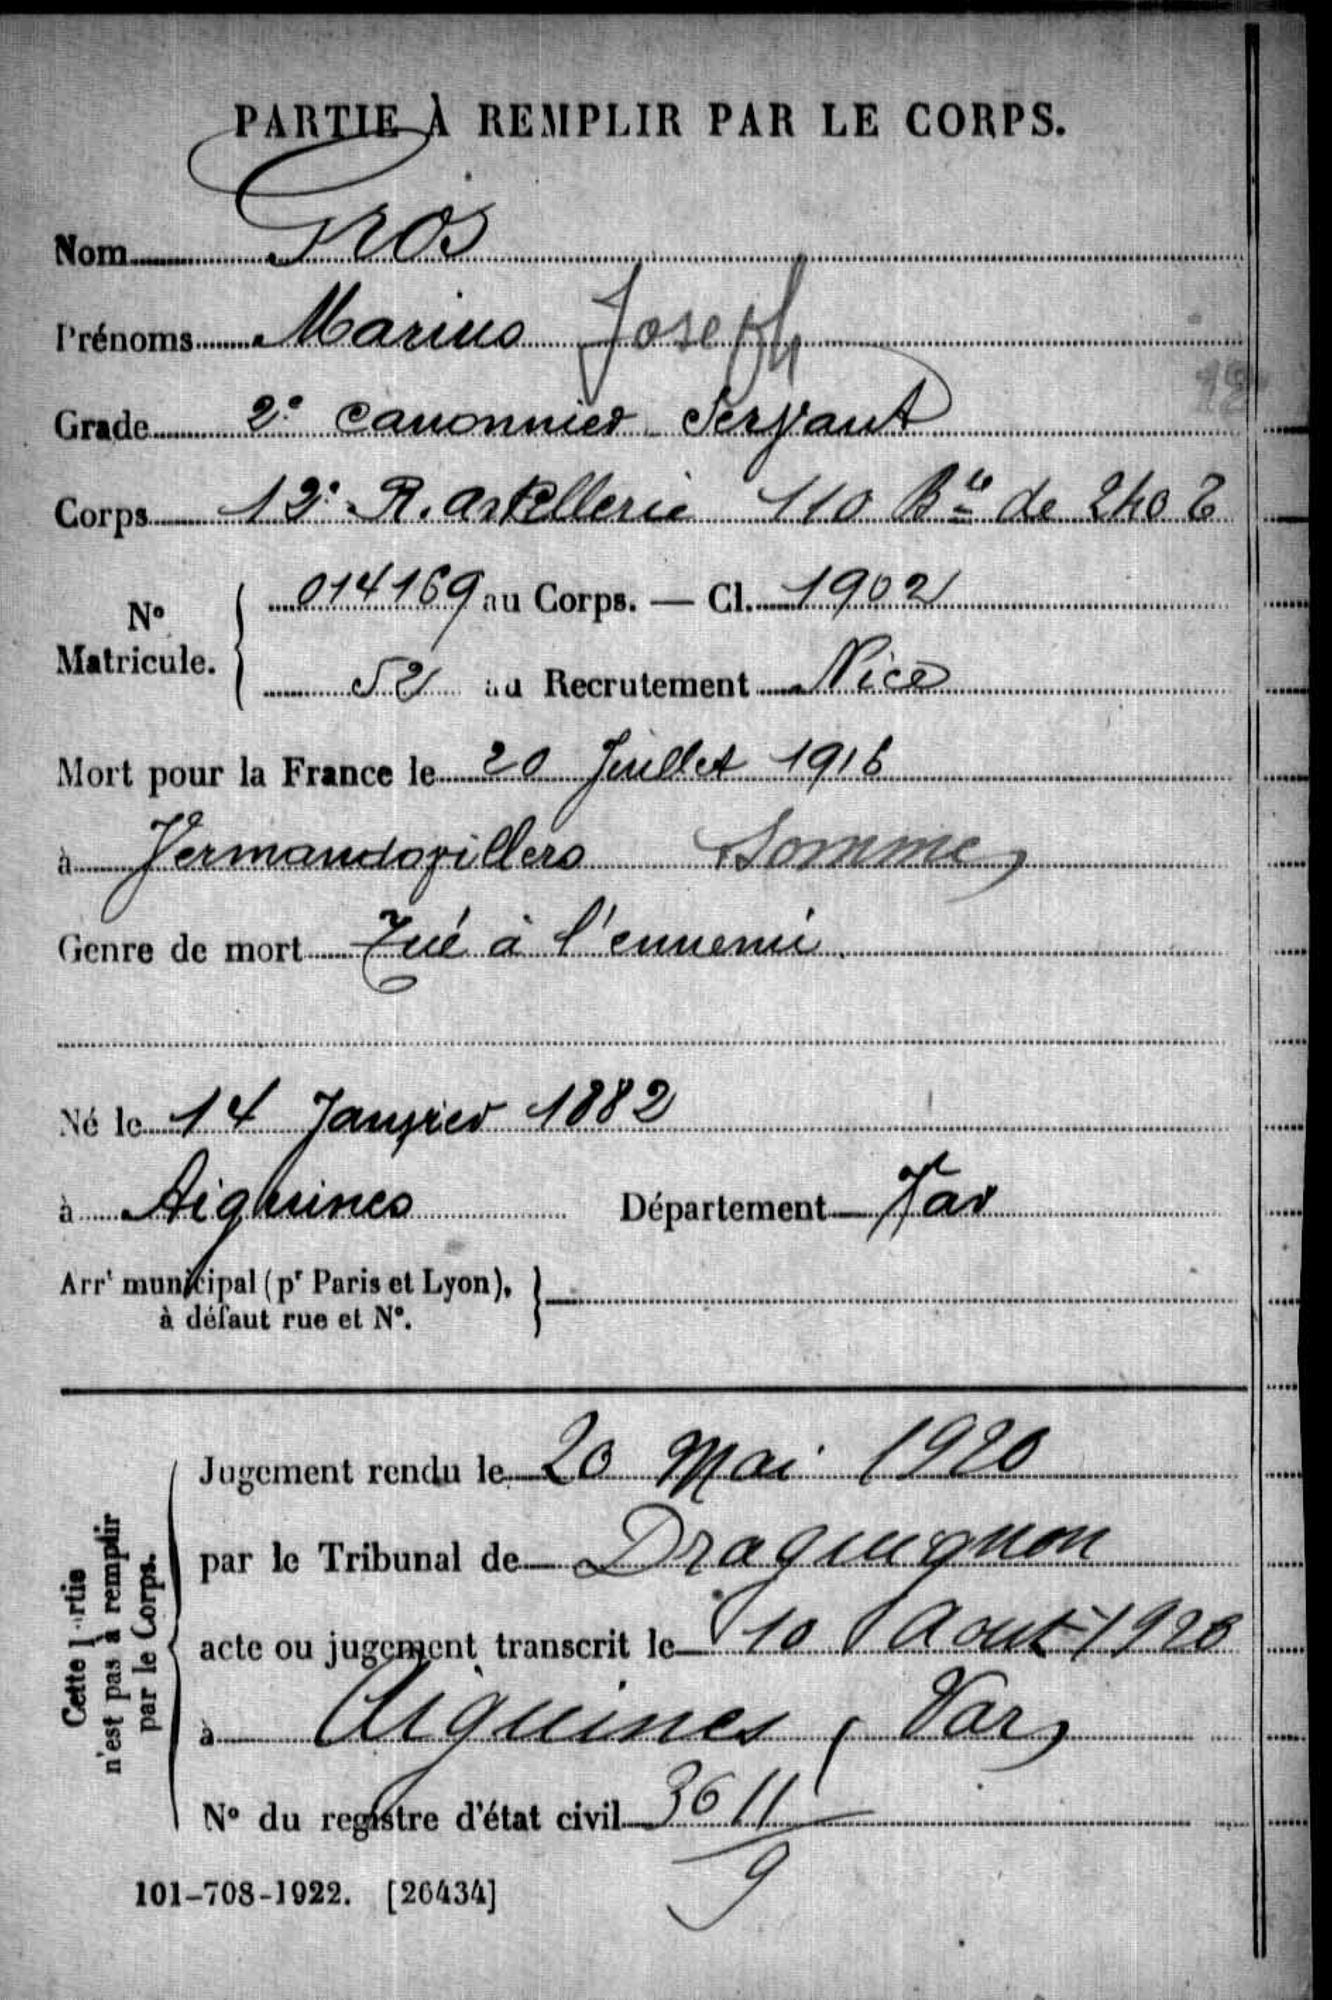 PARTIE À REMPLIR PAR LE CORPS.
Nom Gros
Prénoms Marius Joseph
Grade 2e canonnier Servant
Corps 12e R. artillerie 110 Bie de 240 T
No Matricule. 014169 au Corps. — Cl. 1902
52 au Recrutement Nice
Mort pour la France le 20 Juillet 1916
à Vermandovillers Somme
Genre de mort Tué à l'ennemi.
Né le 14 Janvier 1882
à Aiguines Département Var
Arrt municipal (pr Paris et Lyon),
à défaut rue et No.
Cette partie
n'est pas à remplir
par le Corps.
Jugement rendu le 20 Mai 1920
par le Tribunal de Draguignan
acte ou jugement transcrit le 10 Aout 1920
à Aiguines, Var
No du registre d'état civil 3611/9
101-708-1922. [26434]